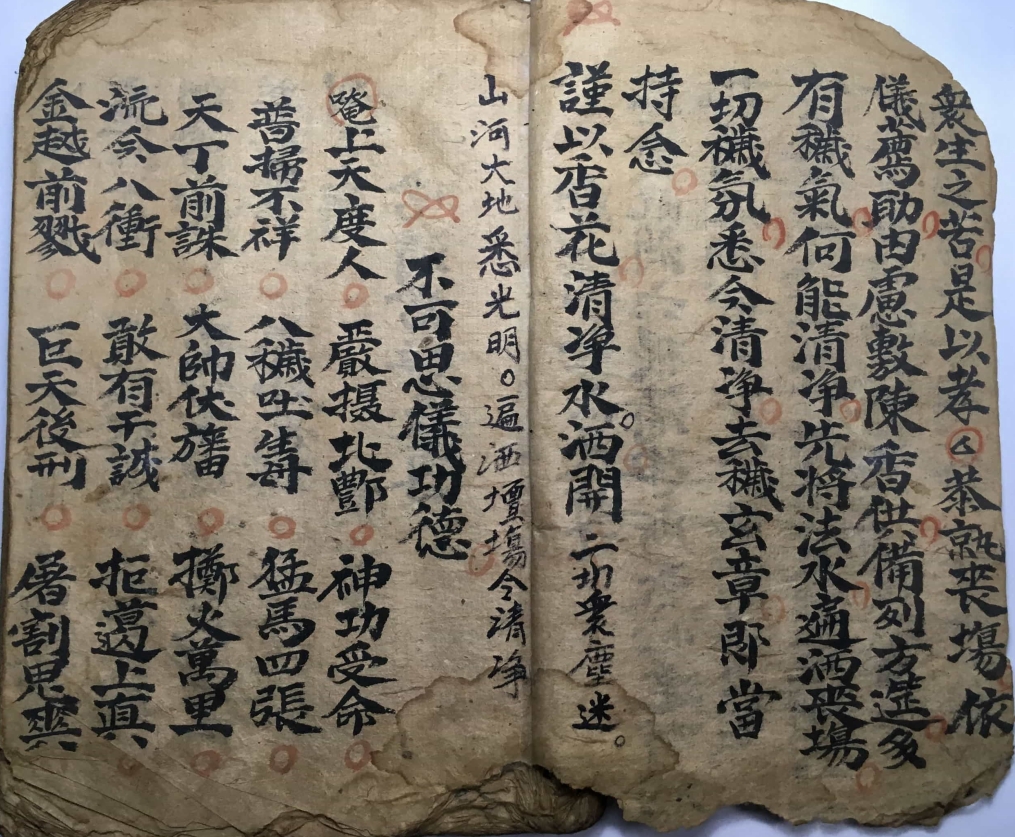 衆生之苦是以孝厶恭就丧塲依
儀薦助由慮敷陳香供備列方筵多
有穢氣何能清净先将法水遍洒丧塲
一切穢氛悉令清净去穢玄章即當
持念
謹以香花清净水。洒開一切衆塵迷。
山河大地悉光明。遍洒壇塲令清净
不可思儀功德
唵上天度人 嚴摄北酆 神功受命
普掃不祥 八穢吐毒 猛馬四張
天丁前誅 大帥仗旛 擲火萬里
流令八衝 敢有干誠 拒遏上真
金越前戮 巨天後刑 屠割鬼爽